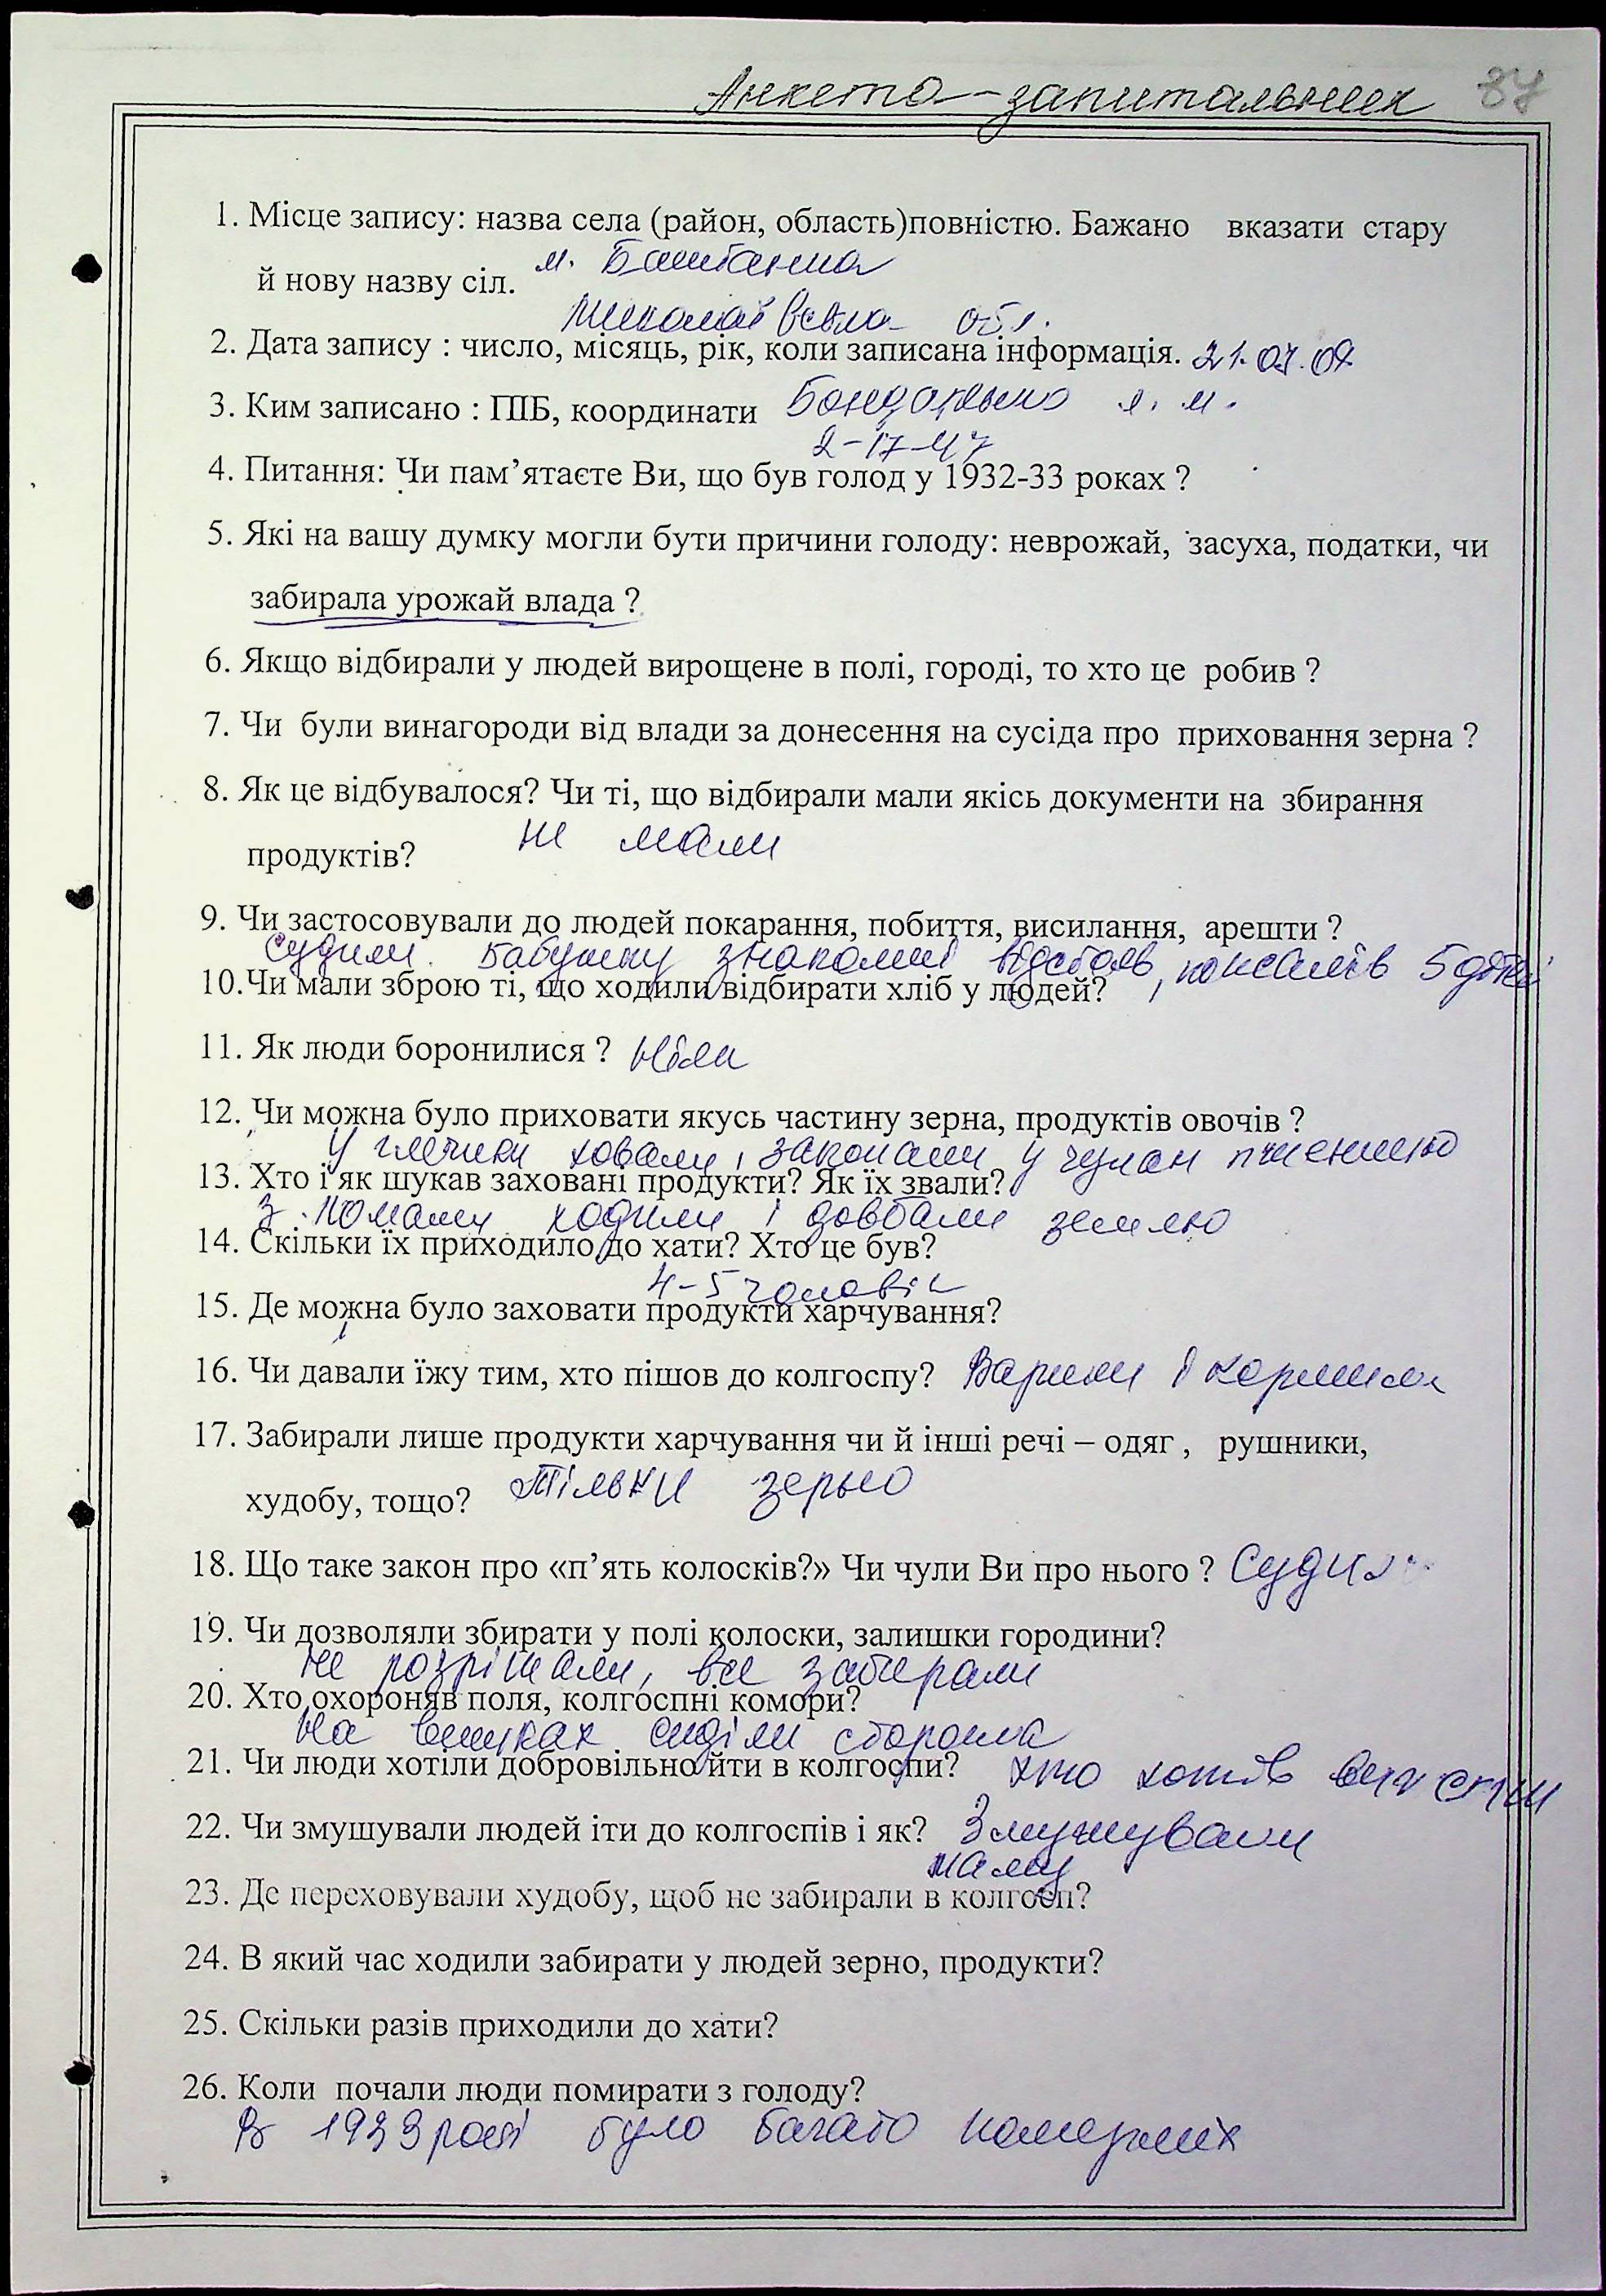 Анкета-запитальник 87
1. Місце запису: назва села (район, область)повністю. Бажано вказати стару
й нову назву сіл. м. Баштанка
Миколаївська обл.
2. Дата запису : число, місяць, рік, коли записана інформація. 21.07.07
3. Ким записано : ПІБ, координати Бондаренко Л. М.
2-17-47
4. Питання: Чи пам’ятаєте Ви, що був голод у 1932-33 роках ?
5. Які на вашу думку могли бути причини голоду: неврожай, засуха, податки, чи
забирала урожай влада ?
6. Якщо відбирали у людей вирощене в полі, городі, то хто це робив ?
7. Чи були винагороди від влади за донесення на сусіда про приховання зерна ?
8. Як це відбувалося? Чи ті, що відбирали мали якісь документи на збирання
продуктів? не мали
9. Чи застосовували до людей покарання, побиття, висилання, арешти ?
судили. Бабушку знакомий відстояв, пожалів 5 дітей
10.Чи мали зброю ті, що ходили відбирати хліб у людей?
11. Як люди боронилися ?
12. Чи можна було приховати якусь частину зерна, продуктів овочів ?
У глечики ховали, закопали у чулан пшеницю
13. Хто і як шукав заховані продукти? Як їх звали?
ходили і довбали землю
14. Скільки їх приходило до хати? Хто це був?
4-5 чоловік
15. Де можна було заховати продукти харчування?
16. Чи давали їжу тим, хто пішов до колгоспу? Варили і кормили
17. Забирали лише продукти харчування чи й інші речі – одяг , рушники,
худобу, тощо? Тільки зерно
18. Що таке закон про «п’ять колосків?» Чи чули Ви про нього ? Судили
19. Чи дозволяли збирати у полі колоски, залишки городини?
Не розрішали, все забирали
20. Хто охороняв поля, колгоспні комори?
На вишках сиділи сторожа
21. Чи люди хотіли добровільно йти в колгоспи? хто хотів
22. Чи змушували людей іти до колгоспів і як? Змушували
маму
23. Де переховували худобу, щоб не забирали в колгосп?
24. В який час ходили забирати у людей зерно, продукти?
25. Скільки разів приходили до хати?
26. Коли почали люди помирати з голоду?
В 1933 році було багато померших